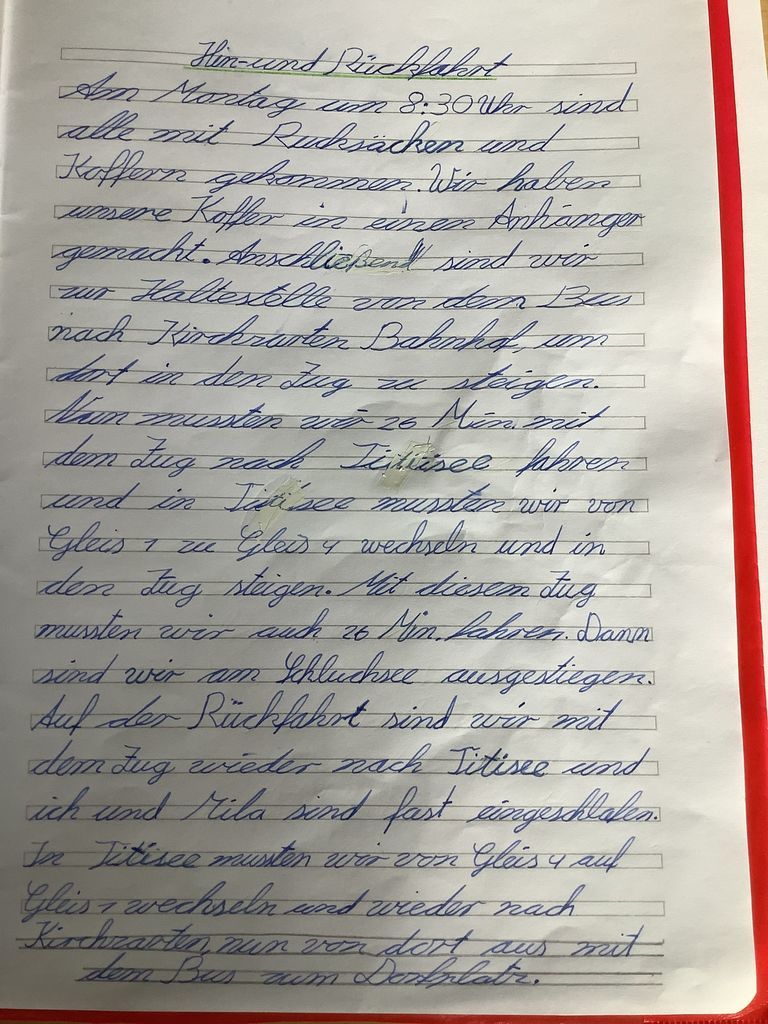 Hin-und Rückfahrt
Am Montag um 8:30 Uhr sind
alle mit Rucksäcken und
Koffern gekommen. Wir haben
unsere Koffer in einen Anhänger
gemacht. Anschließend sind wir
zur Haltestelle von dem Bus
nach Kirchzarten Bahnhof, um
dort in den Zug zu steigen.
Nun mussten wir 26 Min. mit
dem Zug nach Titisee fahren
und in Titisee mussten wir von
Gleis 1 zu Gleis 4 wechseln und in
den Zug steigen. Mit diesem Zug
mussten wir auch 26 Min. fahren. Dann
sind wir am Schluchsee ausgestiegen.
Auf der Rückfahrt sind wir mit
dem Zug wieder nach Titisee und
ich und Mila sind fast eingeschlafen.
In Titisee mussten wir von Gleis 4 auf
Gleis 1 wechseln und wieder nach
Kirchzarten, nun von dort aus mit
dem Bus zum Dorfplatz.